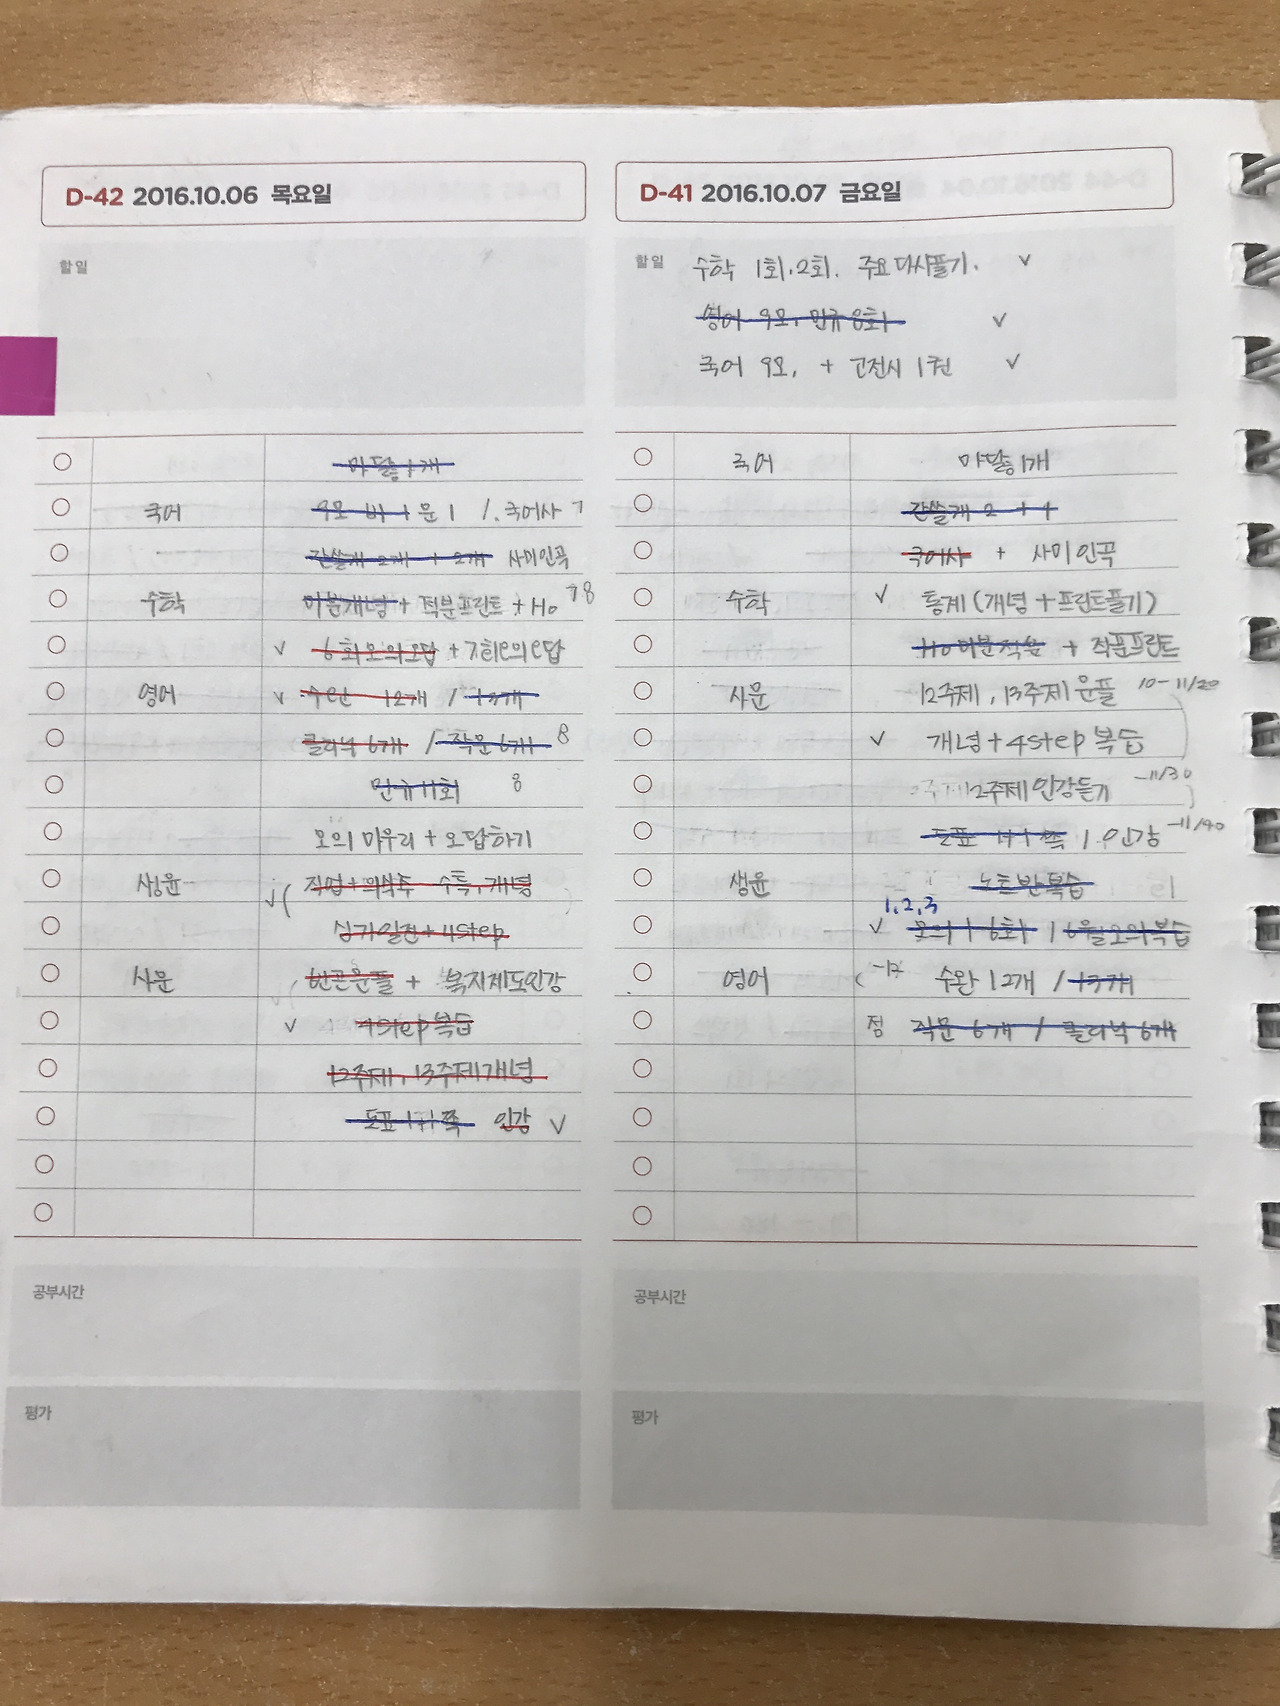 D-42 2016.10.06 목요일
할일
마닳 1개
국어 9모 비 + 문 1 / 국어사 7
간쓸개 2개 + 2개 사미인곡
수학 미분개념 + 적분프린트 + H0 78
✓ 6회모의오답 + 7회모의오답
영어 ✓ 수완 12개 / 13개
클리닉 6개 / 작문 6개 8
만규 11회 8
모의 마무리 + 오답하기
생윤 ✓ ( 직업 + 의식주 수특, 개념
싱거일전 + 4step
사문 ✓ ( 번곤운플 + 복지제도인강
✓ 4step 복습
12주제, 13주제 개념
도표 1+1쪽 인강 ✓
공부시간
평가
D-41 2016.10.07 금요일
할일 수학 1회, 2회. 주요 다시풀기. ✓
영어 9모, 만규 8회 ✓
국어 9모, + 고전시 1권 ✓
국어 마닳 1개
간쓸개 2 + 4
국어사 + 사미인곡
수학 ✓ 통계 (개념 + 프린트풀기)
H0 미분적분 + 적분프린트
사문 12주제, 13주제 운플 10-11/20
✓ 개념 + 4step 복습
12주제 인강듣기 -11/30
도표 1+1쪽 / 인강 -11/40
생윤 노트반복습
1, 2, 3
✓ 모의 1-6회 / 6월모의복습
영어 ( -12 수완 12개 / 13개
점 작문 6개 / 클리닉 6개
공부시간
평가